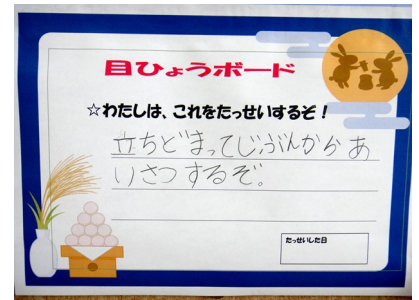 目ひょうボード
☆わたしは、これをたっせいするぞ！
立ちどまってじぶんからあ
いさつするぞ。
たっせいした日